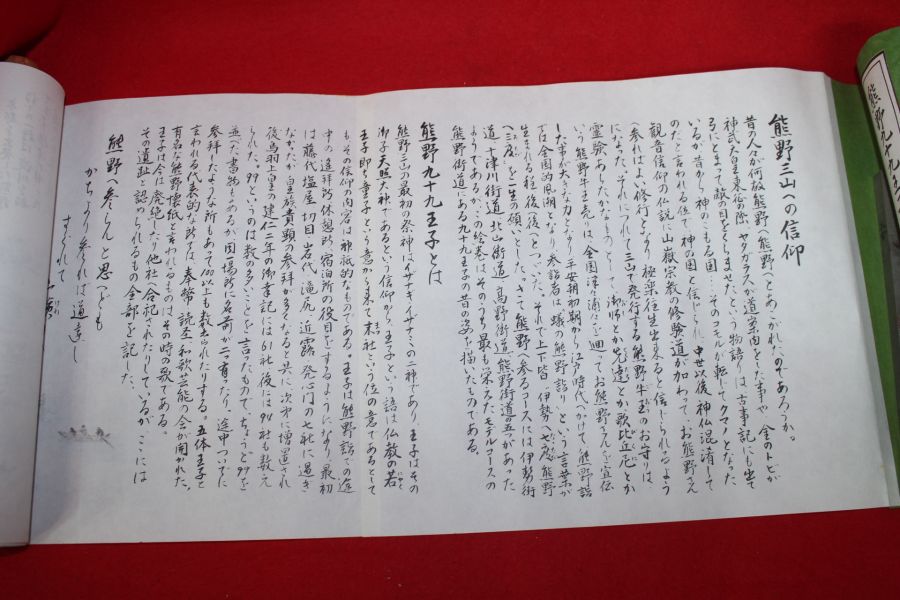 熊野三山への信仰
昔の人々が何故熊野へ熊野へとあこがれたのであろうか。
神武天皇東征の際、ヤタガラスが道案内をした事や、金のトビが
弓にとまって敵の目をくらませたという物語りは、古事記にも出て
いるが昔から神のこもる国……そのコモルが転じてクマノとなった
のだと言われる位で、神の国と信じられ、中世以後神仏混淆して
観音信仰の仏説に山嶽宗教の修験道が加わって、お熊野さん
へ参ればよい修行となり極楽往生出来ると信じられるよう
になった、それにつれて三山で発行する熊野牛王のお守りは、
霊験あらたかなものとして、御師とか先達とか歌比丘尼とか
いう熊野牛王売りは、全国津々浦々を廻ってお熊野さんを宣伝
した事が大きな力となり、平安朝初期から江戸時代へかけて、熊野詣
では全国的風潮となり参詣者は蟻の熊野詣りという言葉が
生まれる程後後とつづいた。それで上下皆、伊勢へ七度熊野
へ三度を一生の願いとした、さて熊野へ参るコースには伊勢街
道、十津川街道、北山街道、高野街道、熊野街道の五つがあった
ようであるが、この絵巻はそのうち最も栄えたモデルコースの
熊野街道にある九十九王子の昔の姿を描いたものである。
熊野九十九王子とは
熊野三山の最初の祭神はイザナギ、イザナミの二神であり、王子はその
御子天照大神であるという信仰から、王子という語は仏教の若
王子即ち童子という意から来て末社という位の意であるとして
もその信仰内容は神祇的なものである。王子は熊野詣での途
中の遥拝所、休憩所、宿泊所の役目をするようになり、最初
は藤代、塩屋、切目、岩代、滝尻、近露、発心門の七社に過ぎ
なかったが皇族貴顕の参拝が多くなると共に次第に増置され
後鳥羽上皇の建仁二年の御幸記には61社、後には94社も数え
られた。99というのは数の多いことを言ったもので、ちょうど99を
並べた書物もあるが同一場所に名前が二つ有ったり、途中ついでに
参拝したような所もあって100以上も数えられたりする。五体王子と
言われる代表的な所では、奉幣、読経、和歌、芸能の会が開かれた。
有名な熊野懐紙と言われるものはその時の歌である。
王子は今は廃絶したり他社へ合祀されたりしているが、ここには
その遺趾と認められるもの全部を記した。
熊野へ参らんと思へども
かちより参れば道遠し
すぐれて
熊野九十九王子